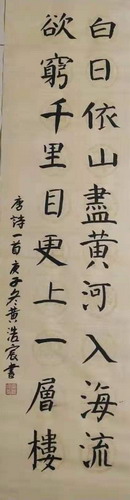 白日依山盡黃河入海流
欲窮千里目更上一層樓
唐詩一首庚子冬黃浩宸書